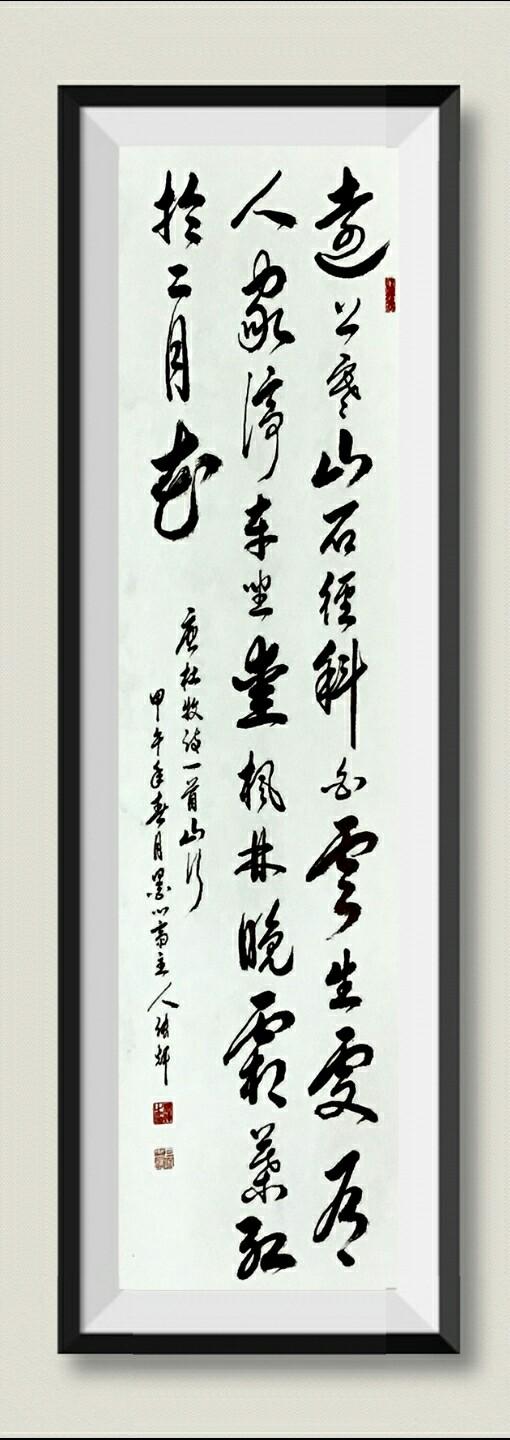 遠上寒山石徑斜白雲生處有
人家停車坐愛楓林晚霜葉紅
於二月花
唐杜牧詩一首山行
甲午年春月墨心齋主人輝